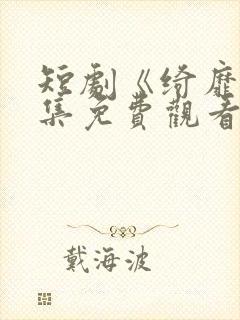 短劇《綺靡
集免費觀看
戴海波